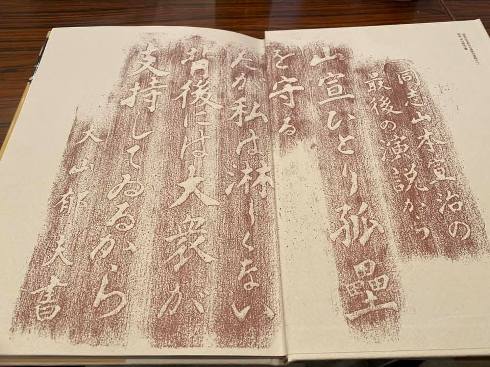 同志山本宣治の
最後の演説から
山宣ひとり孤塁
を守る
だが私は淋しくない
背後には大衆が
支持してゐるから
大山郁夫書